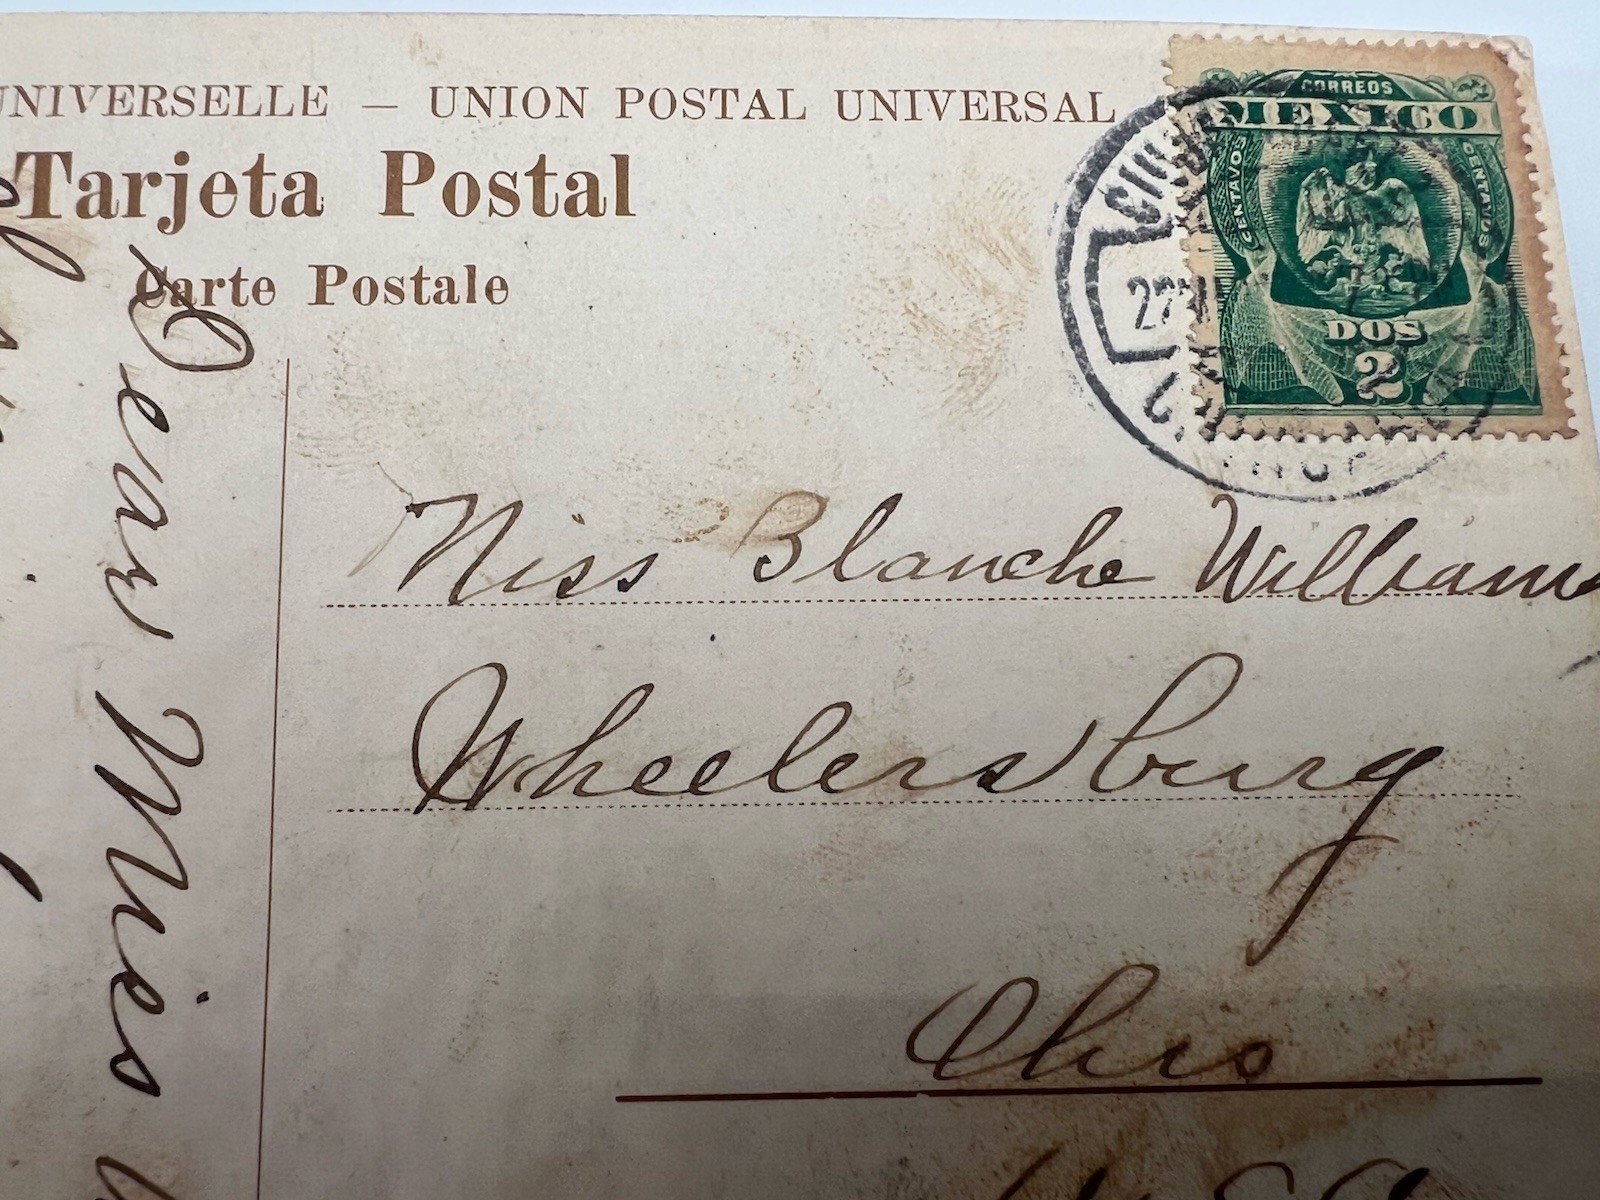 UNIVERSELLE — UNION POSTAL UNIVERSAL
Tarjeta Postal
Carte Postale
CORREOS
MEXICO
CENTAVOS
CENTAVOS
DOS
2
27
Miss Blanche Williams
Wheelersburg
Ohio
U.S.A
Dear Miss